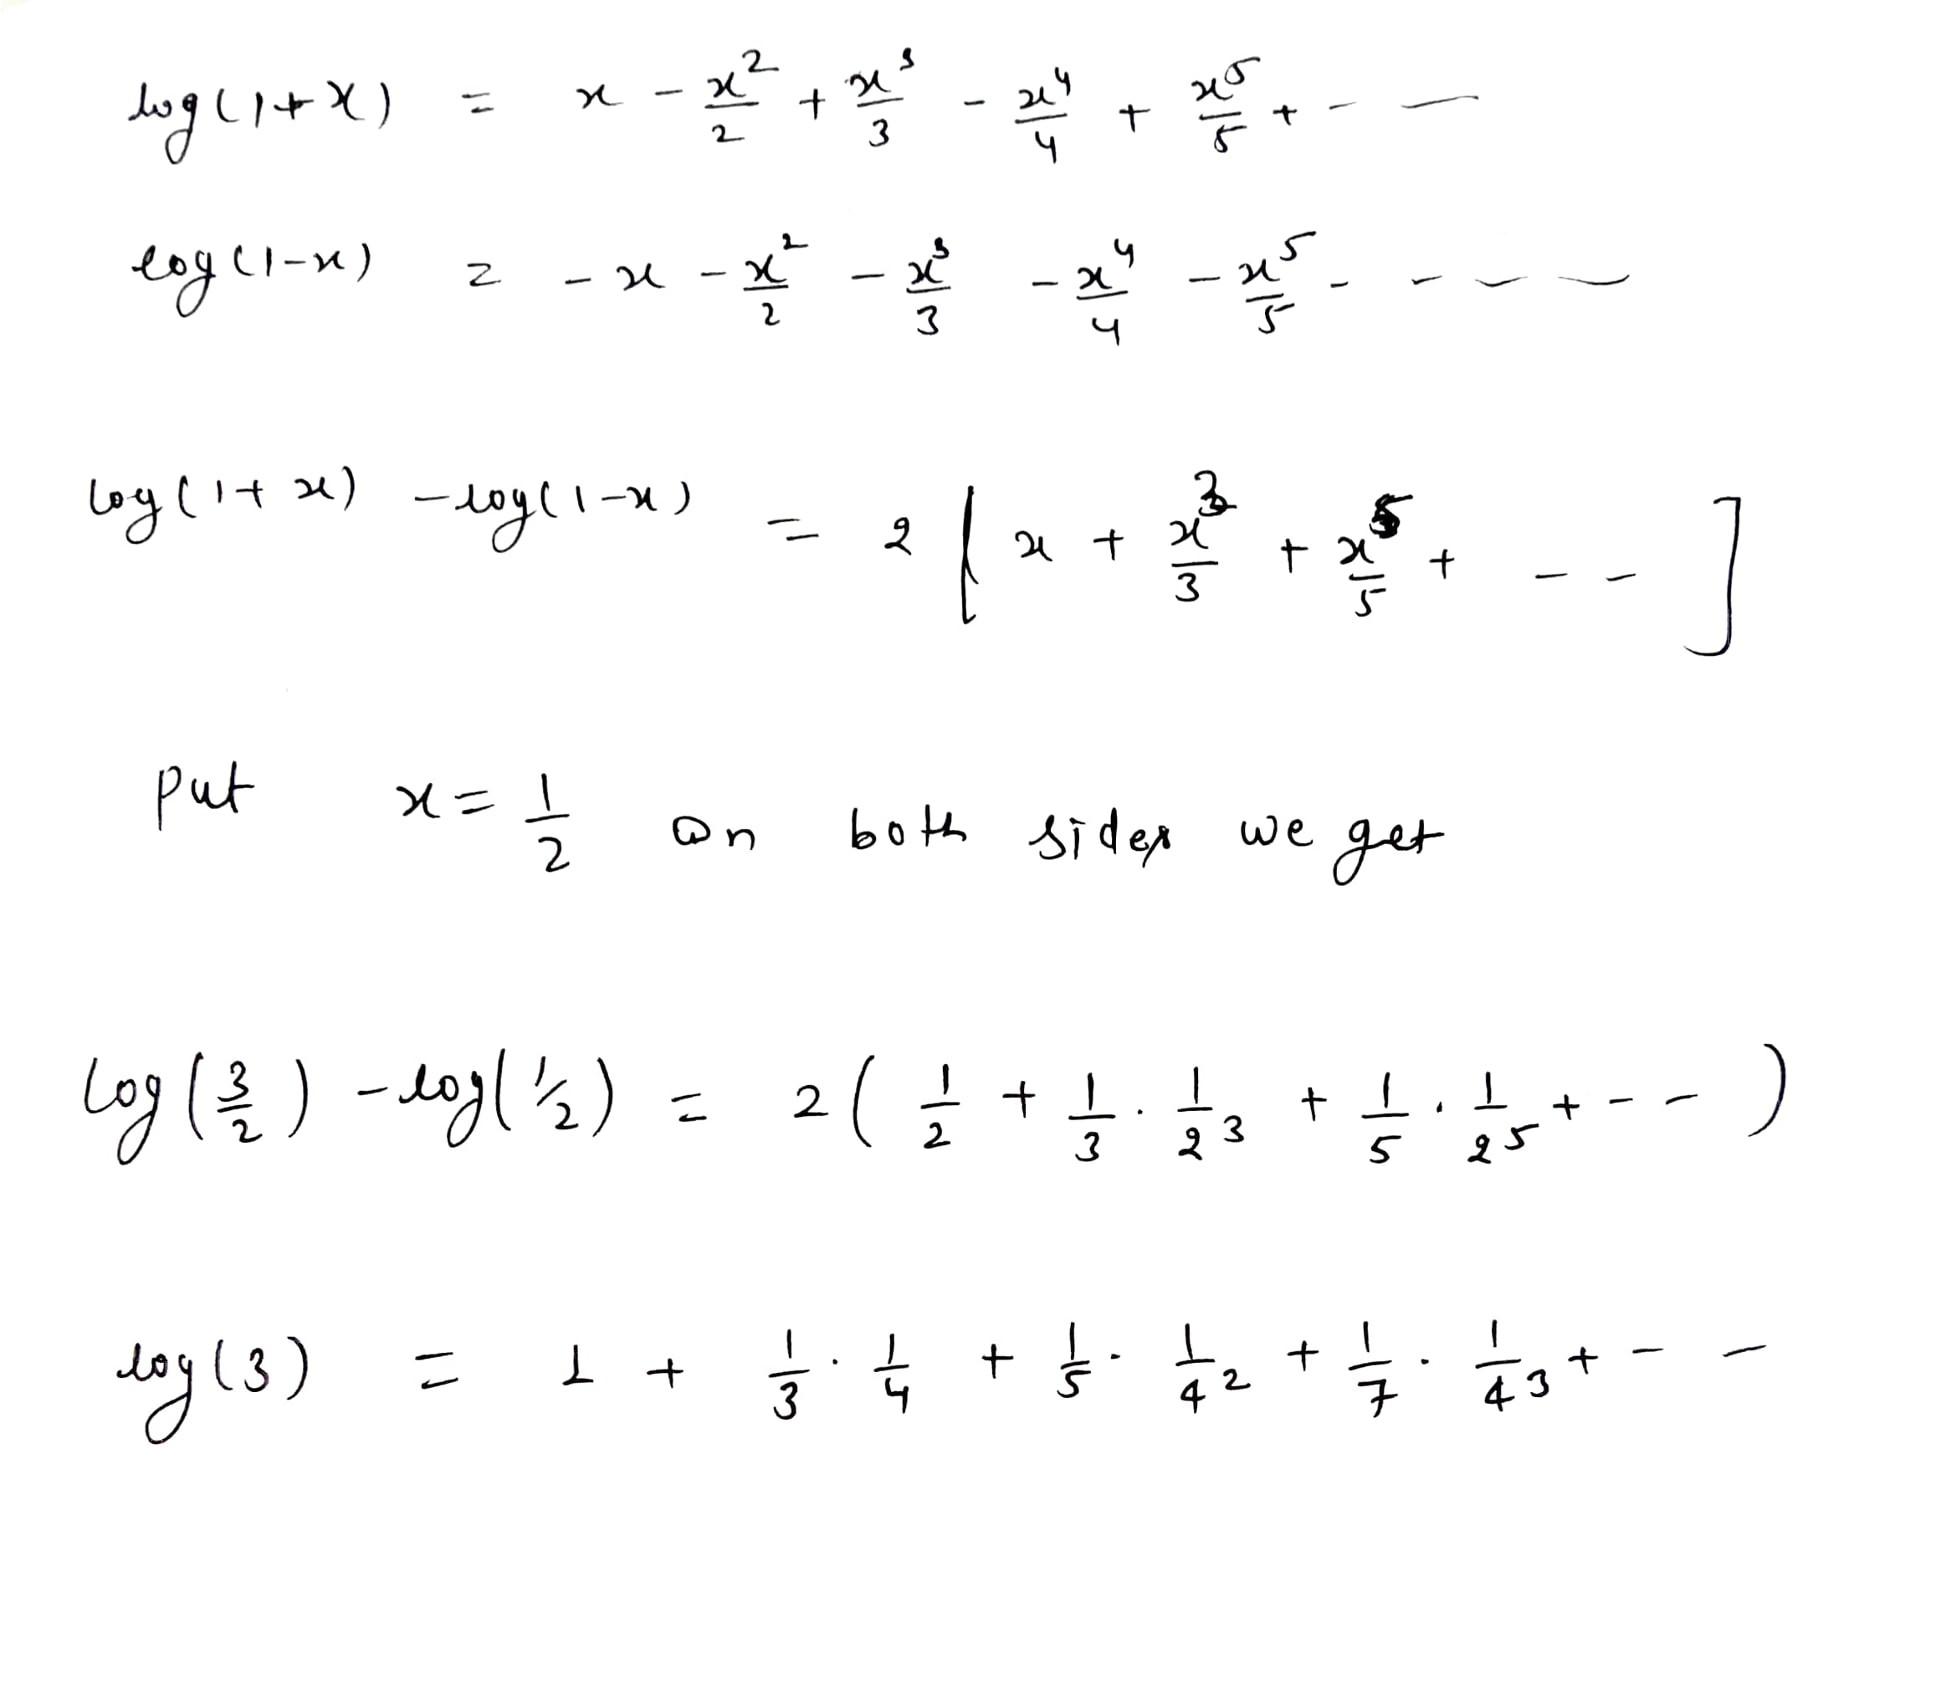 log(1+x) = x - x²/2 + x³/3 - x⁴/4 + x⁵/5 + - —
log(1-x) = -x - x²/2 - x³/3 - x⁴/4 - x⁵/5 - - - -
log(1+x) - log(1-x) = 2 [ x + x³/3 + x⁵/5 + - - ]
Put x = 1/2 on both sides we get
log(3/2) - log(1/2) = 2 ( 1/2 + 1/3 · 1/2³ + 1/5 · 1/2⁵ + - - )
log(3) = 1 + 1/3 · 1/4 + 1/5 · 1/4² + 1/7 · 1/4³ + - -